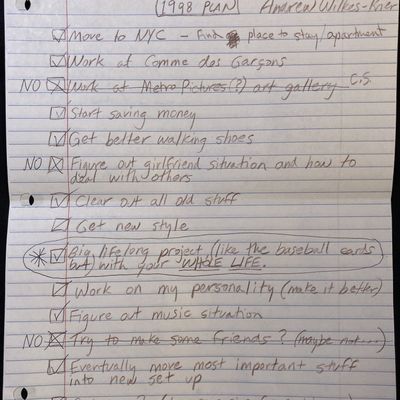 1998 PLAN Andrew Wilkes-Krier
Move to NYC - Find place to stay/apartment
Work at Comme das Garçons
NO Work at Metro Pictures(?) art gallery C.S.
Start saving money
Get better walking shoes
NO Figure out girlfriend situation and how to
deal with others
Clear out all old stuff
Get new style
Big lifelong project (like the baseball cards
but) with your WHOLE LIFE.
Work on my personality (make it better)
Figure out music situation
NO Try to make some friends? (maybe not...)
Eventually move most important stuff
into new set up